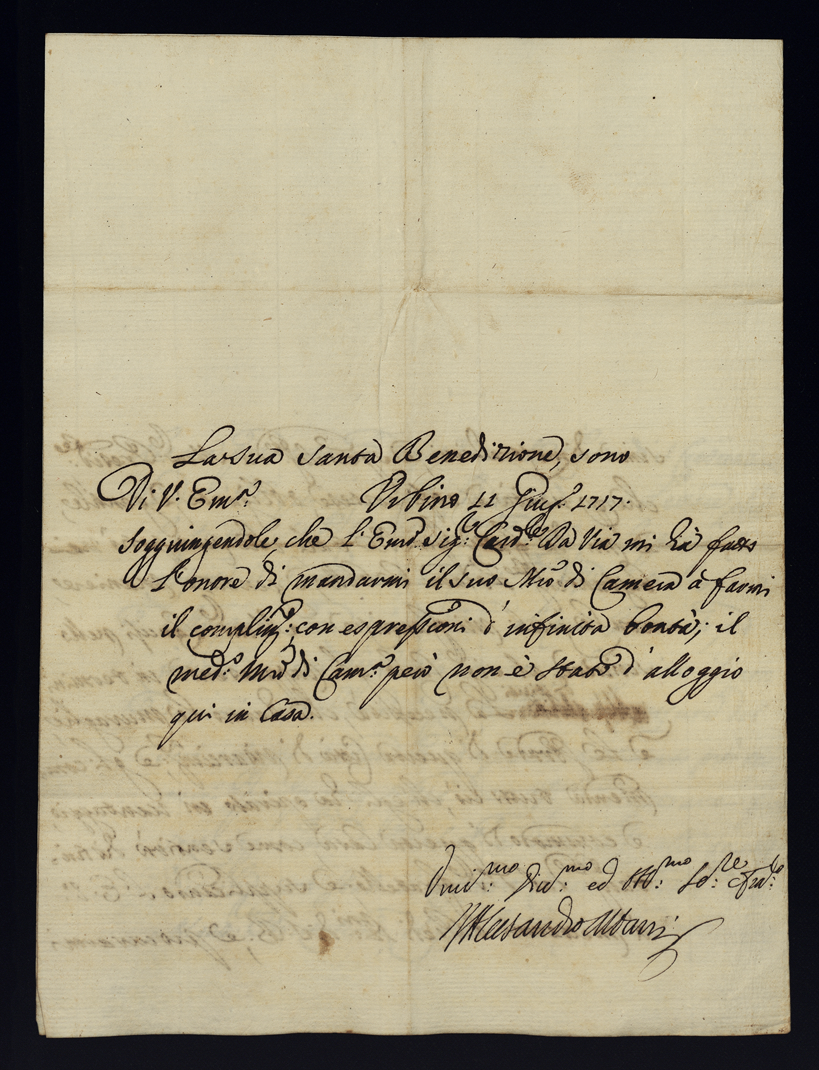 La sua Santa Benedizione, sono
Di V. Em.ᵃ Urbino 11 Giug.º 1717.
Soggiungendole, che l'Em.º Sig.ʳ Card.ˡᵉ Da Via mi hà fatto
l'onore di mandarmi il suo Mrõ di Camera à farmi
il complim.º; con espressioni d'infinita bontà; il
med.º Mrõ di Cam.ᵃ però non è stato d'alloggio
qui in Casa.
Umi.ᵐᵒ Div.ᵐᵒ ed Obb.ᵐᵒ Se.ʳᵉ e Fra.ˡᵒ
Alesandro Albani